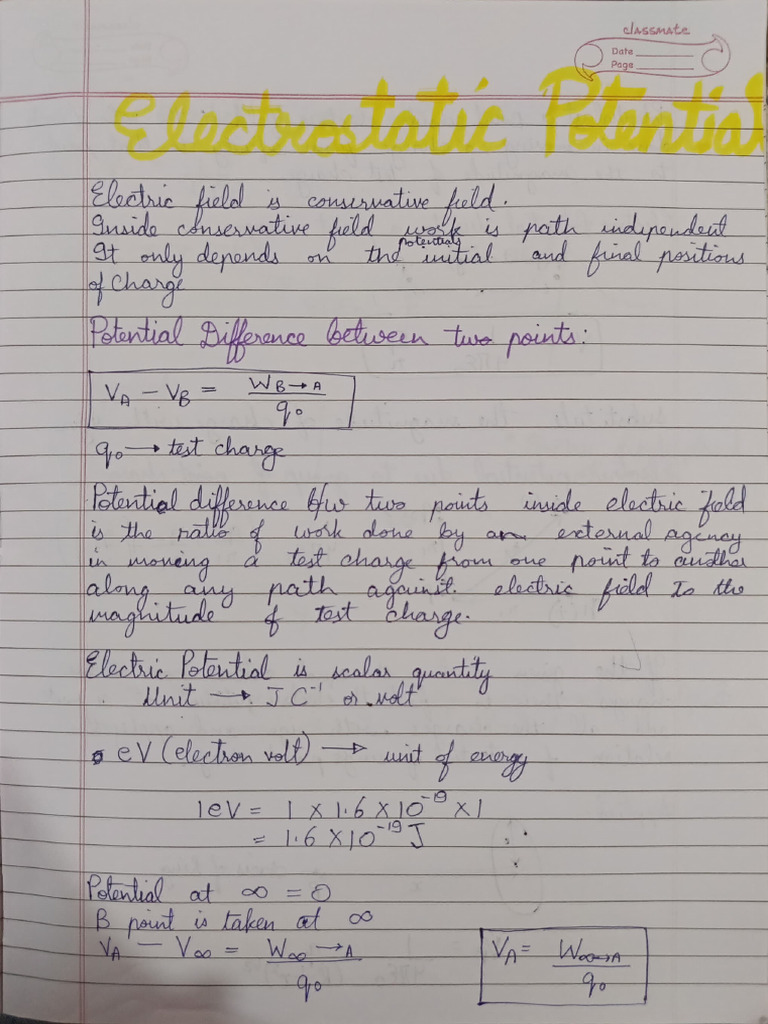 classmate
Date
Page
Electrostatic Potential
Electric field is conservative field.
Inside conservative field work is path independent
It only depends on the potentials initial and final positions
of Charge
Potential Difference between two points:
V_A − V_B = W_B→A / q₀
q₀ → test charge
Potential difference b/w two points inside electric field
is the ratio of work done by an external agency
in moving a test charge from one point to another
along any path against electric field to the
magnitude of test charge.
Electric Potential is scalar quantity
Unit → J C⁻¹ or volt
eV (electron volt) → unit of energy
1eV = 1 × 1.6 × 10⁻¹⁹ × 1
= 1.6 × 10⁻¹⁹ J
Potential at ∞ = 0
B point is taken at ∞
V_A − V_∞ = W_∞→A / q₀
V_A = W_∞→A / q₀